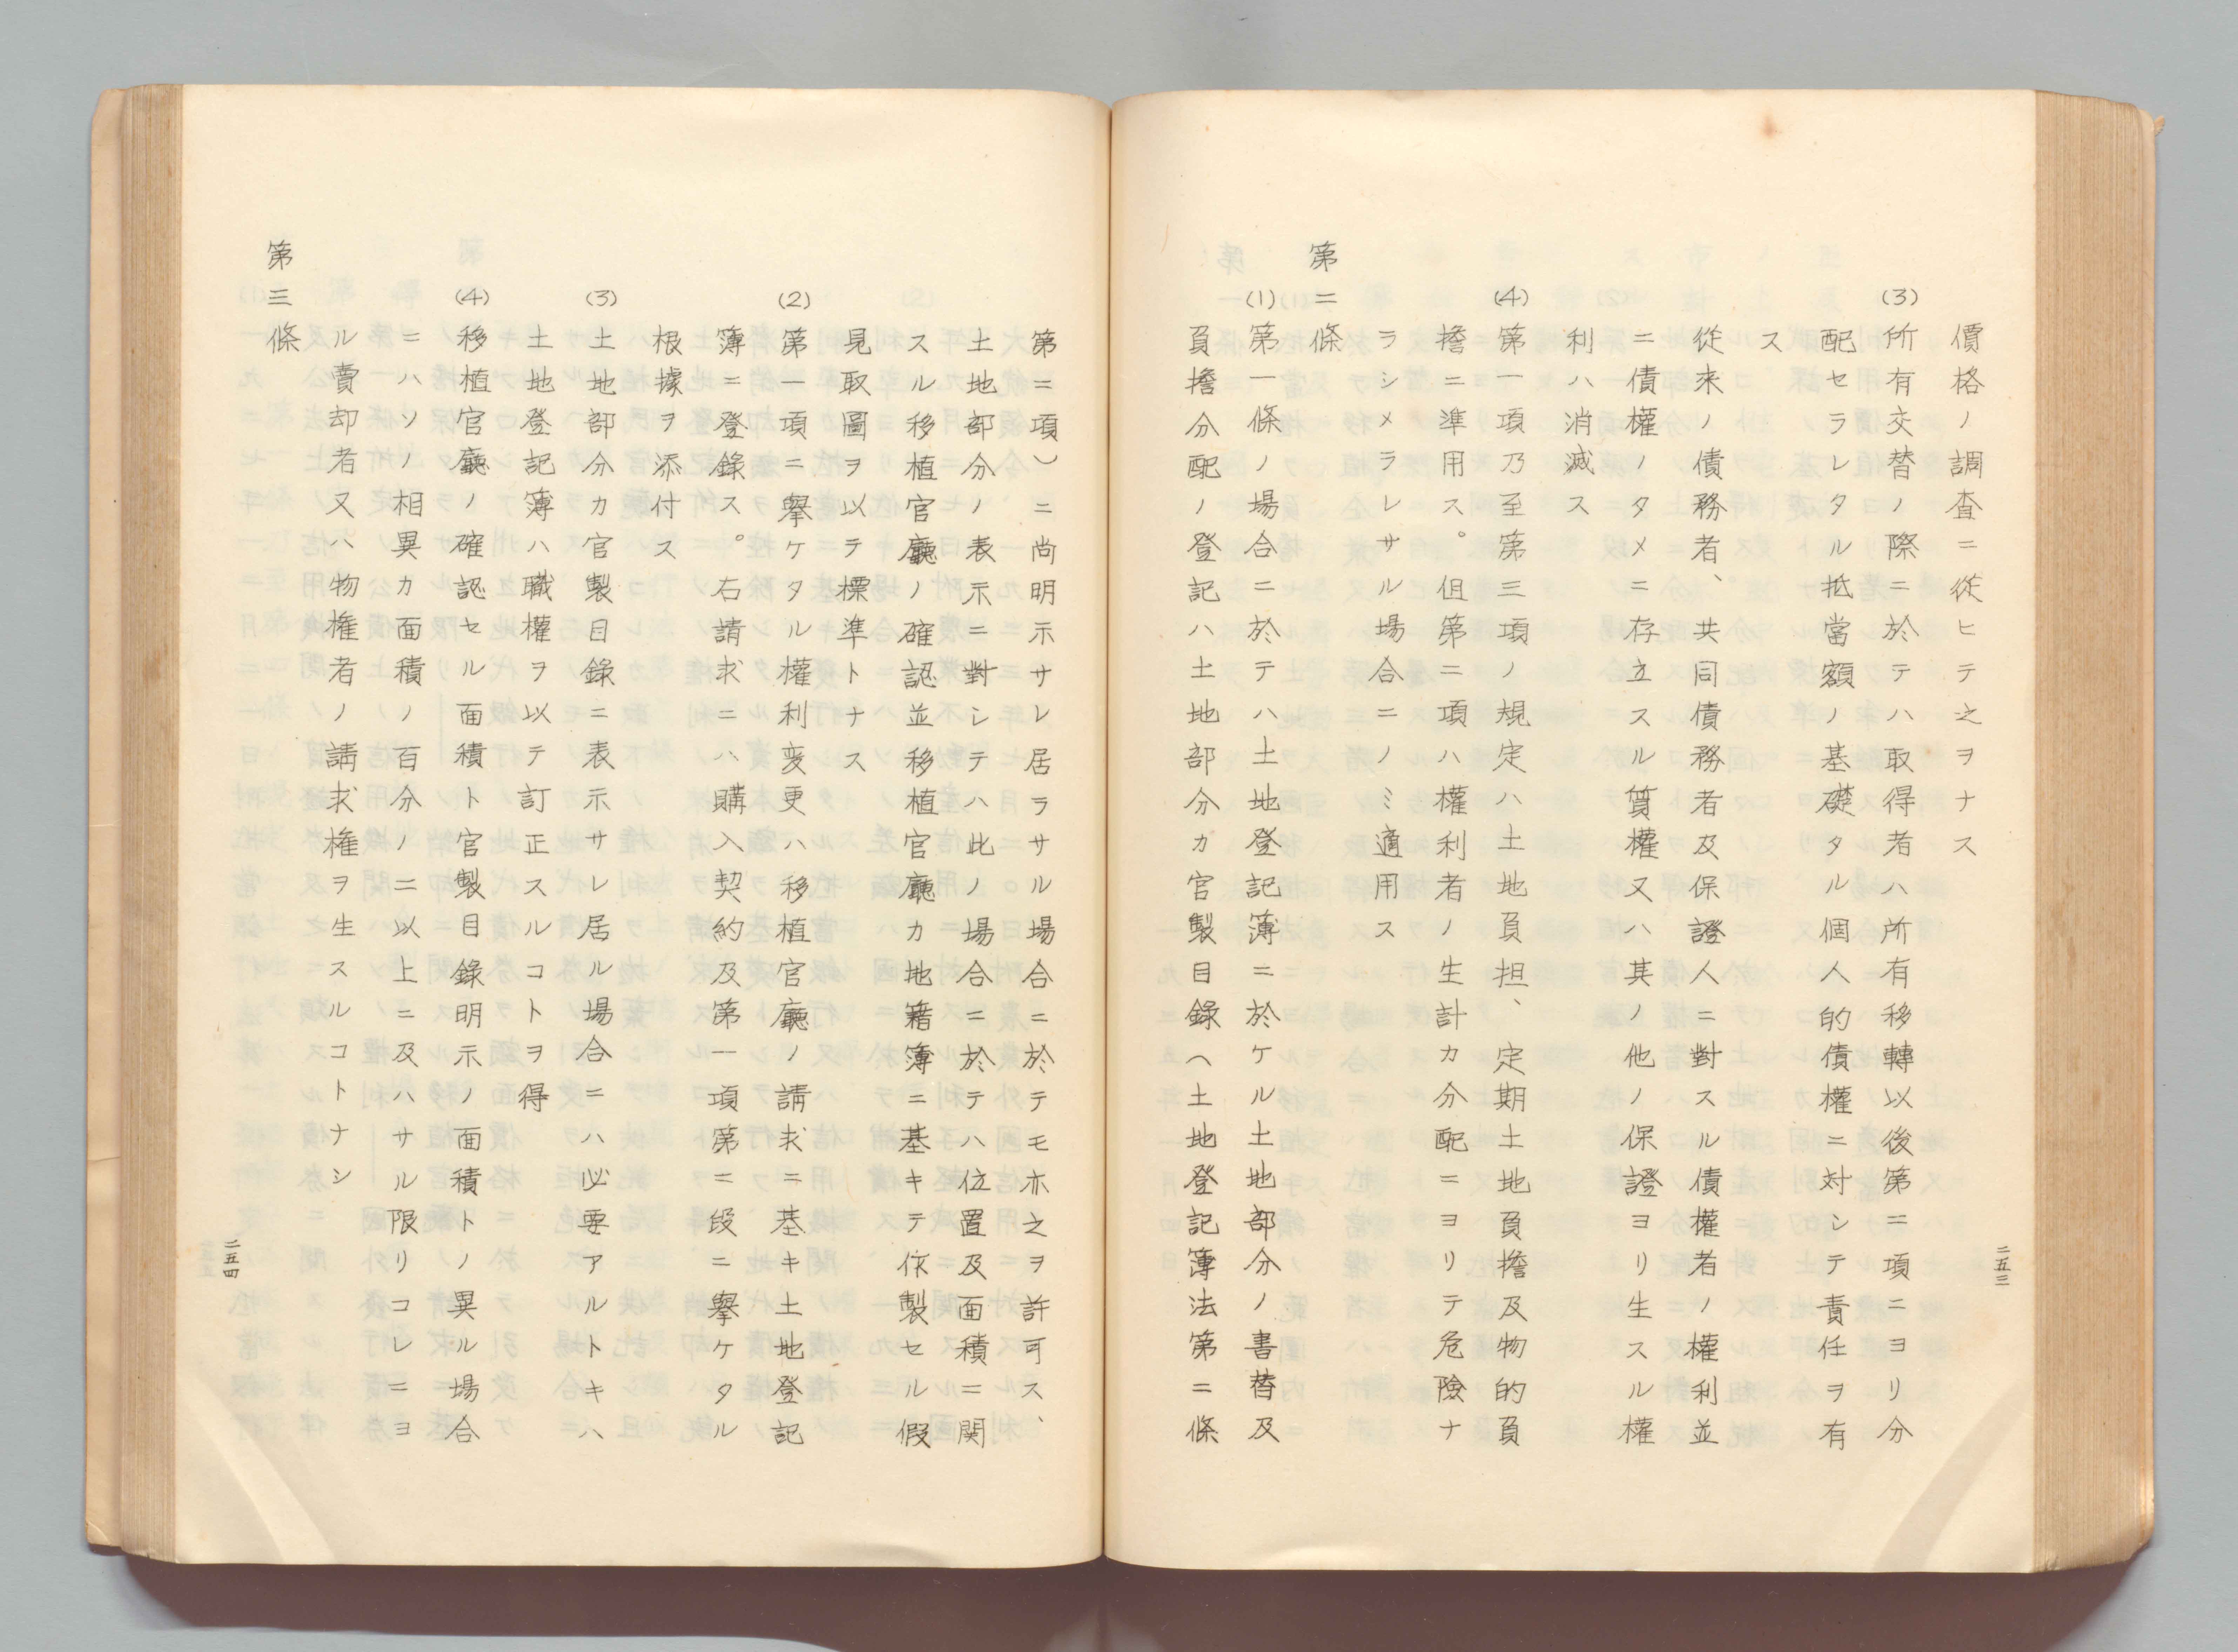 價格ノ調査ニ從ヒテ之ヲナス
(3)所有交替ノ際ニ於テハ取得者ハ所有移轉以後第二項ニヨリ分
配セラレタル抵當額ノ基礎タル個人的債權ニ対シテ責任ヲ有
ス
從来ノ債務者、共同債務者及保證人ニ對スル債權者ノ權利並
ニ債權ノタメニ存立スル質權又ハ其ノ他ノ保證ヨリ生スル權
利ハ消滅ス
(4)第一項乃至第三項ノ規定ハ土地負担、定期土地負擔及物的負
擔ニ準用ス。但第二項ハ權利者ノ生計カ分配ニヨリテ危險ナ
ラシメラレサル場合ニノミ適用ス
第二條
(1)第一條ノ場合ニ於テハ土地登記簿ニ於ケル土地部分ノ書替及
負擔分配ノ登記ハ土地部分カ官製目錄(土地登記簿法第二條
二五三
第二項)ニ尚明示サレ居ラサル場合ニ於テモ亦之ヲ許可ス、
土地部分ノ表示ニ對シテハ此ノ場合ニ於テハ位置及面積ニ関
スル移植官廳ノ確認並移植官廳カ地籍簿ニ基キテ作製セル假
見取圖ヲ以テ標準トナス
(2)第一項ニ擧ケタル權利変更ハ移植官廳ノ請求ニ基キ土地登記
簿ニ登錄ス。右請求ニハ購入契約及第一項第二段ニ擧ケタル
根據ヲ添付ス
(3)土地部分カ官製目錄ニ表示サレ居ル場合ニハ必要アルトキハ
土地登記簿ハ職權ヲ以テ訂正スルコトヲ得
(4)移植官廳ノ確認セル面積ト官製目錄明示ノ面積トノ異ル場合
ニハソノ相異カ面積ノ百分ノ二以上ニ及ハサル限リコレニヨ
ル賣却者又ハ物権者ノ請求権ヲ生スルコトナシ
第三條
二五四